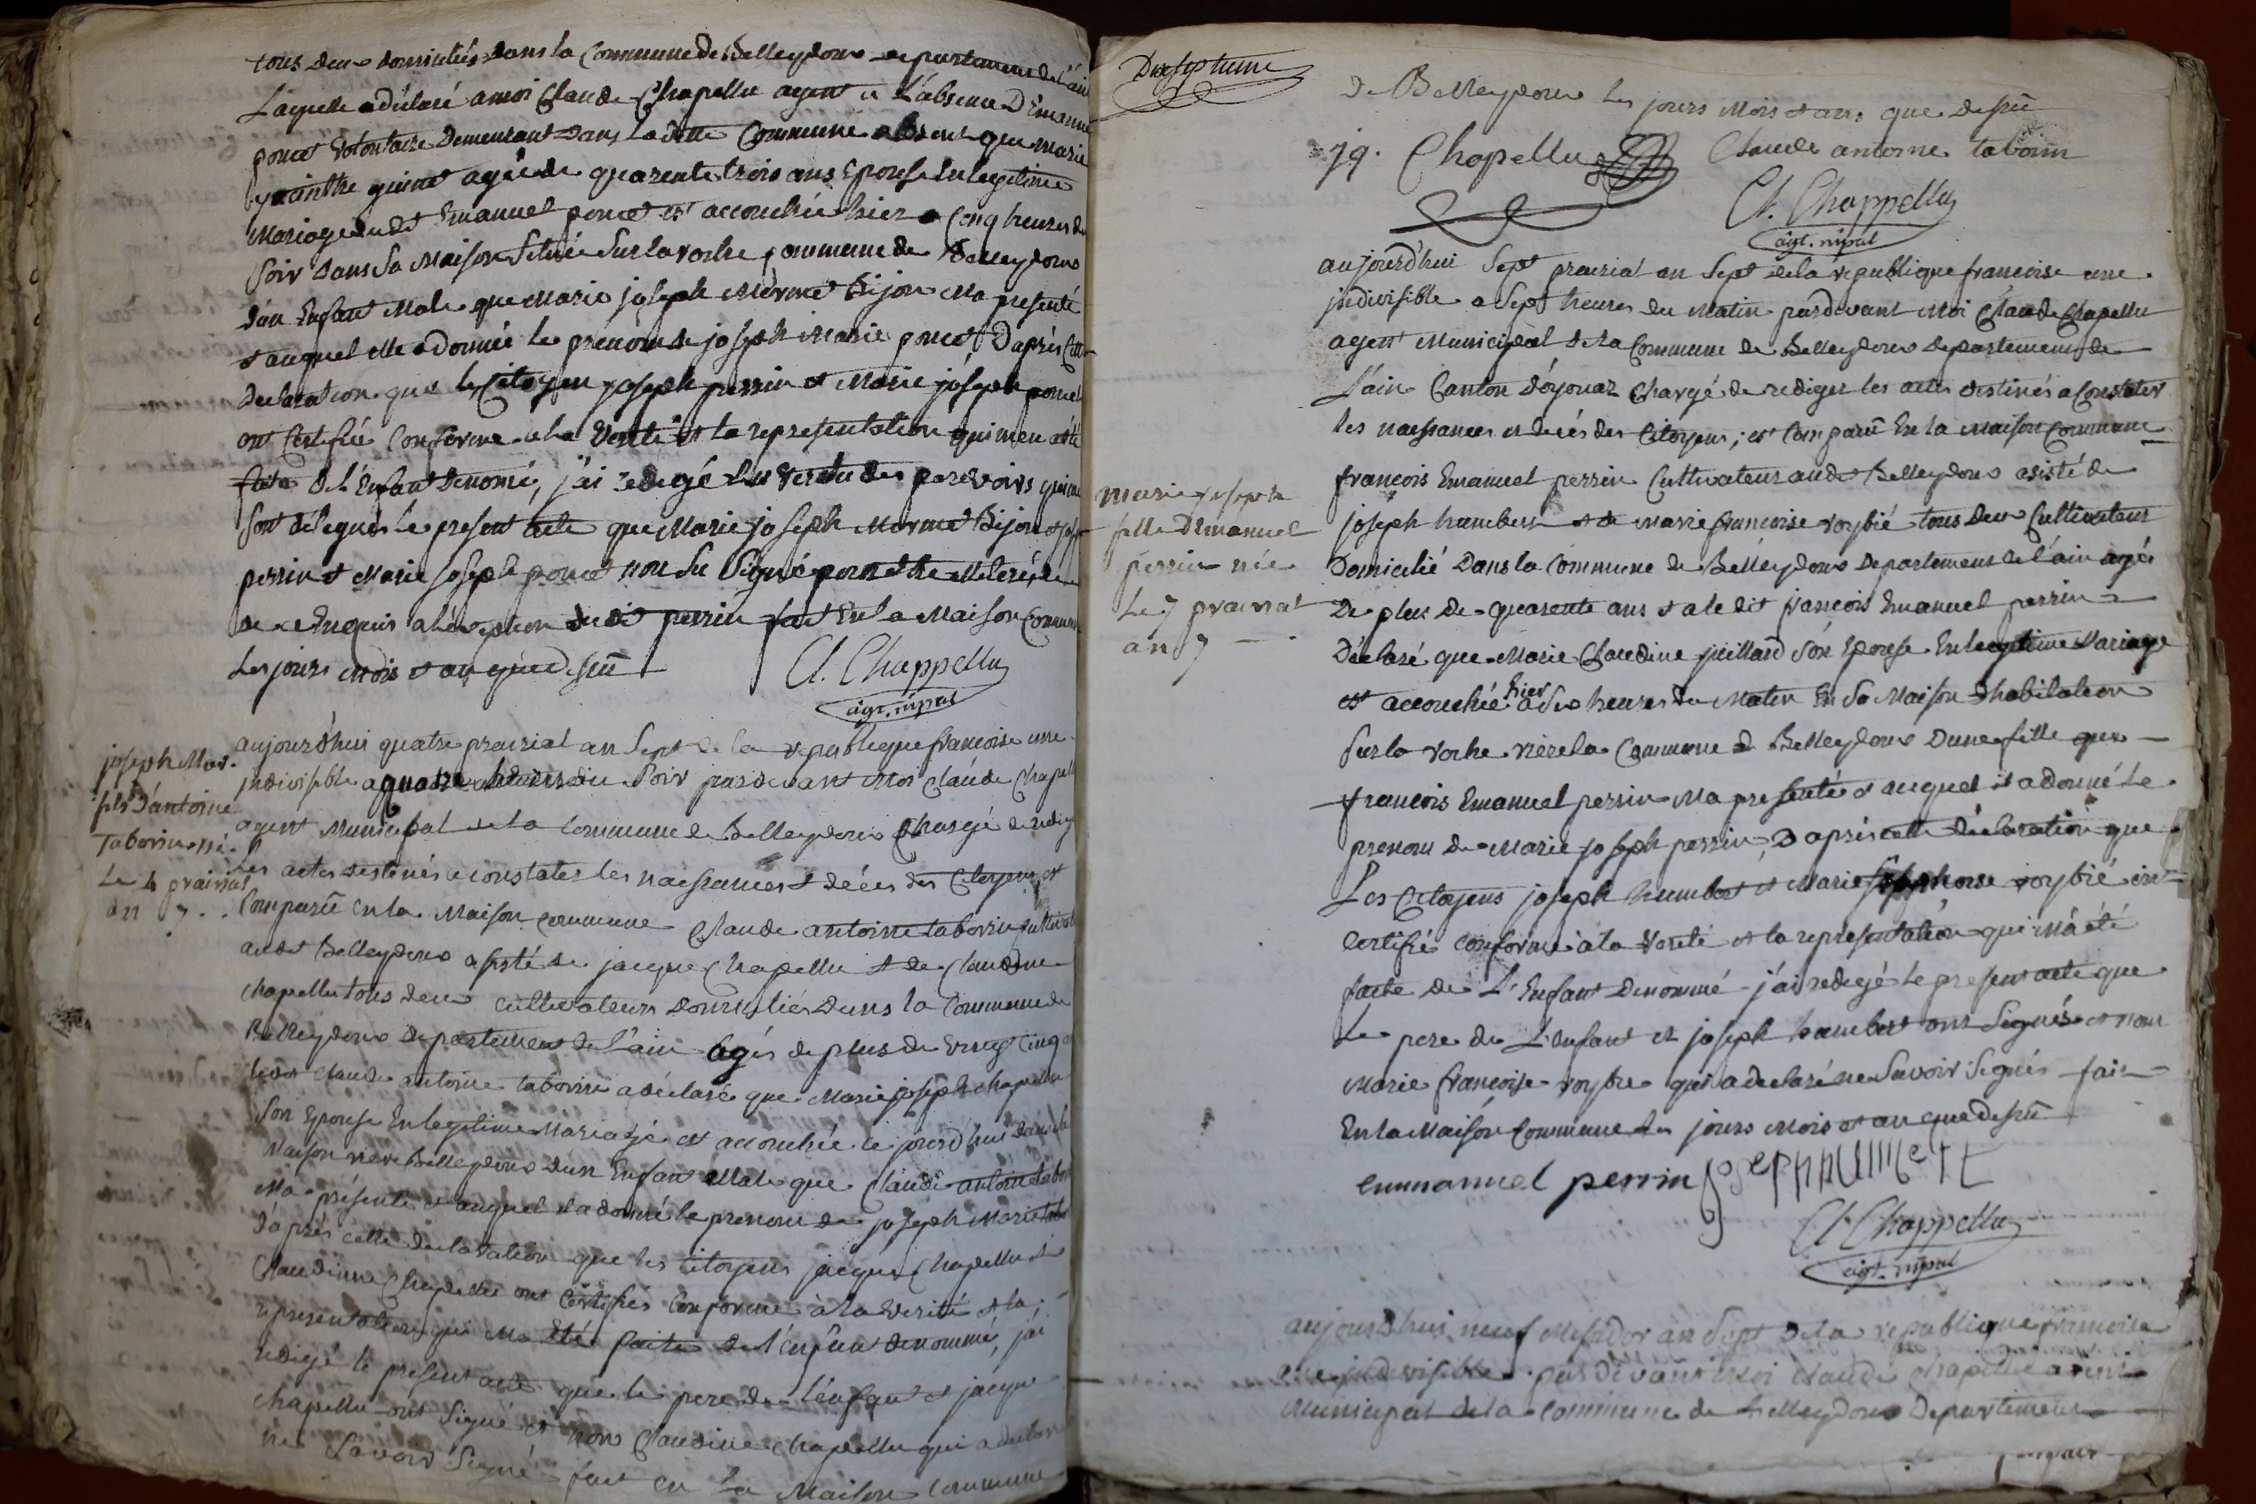 tous deux domicilies dans la Commune de Belleydoux departement de l'ain
Laquelle a déclaré a moi Claude Chapellu agent et L'absence D'Emanuel
poncet volontaire Demeurant dans Ladite Commune absent que marie
yacinthe guinet agée de quarente trois ans Epouse En legitime
Mariage dudt Emanuel poncet est accouchée hier a Cinq heures du
soir dans Sa Maison Située Sur la roche Commune de Belleydoux
d'un Enfant Male que Marie joseph Mermet Bijon Ma presenté
et auquel elle a donnée le prenom de joseph Marie poncet, D'après Cette
declaration que le Citoyen joseph perrin et Marie joseph poncet
ont Certifié Conforme a la Verité et la representation qui men a été
faite de L'Enfant denomé, j'ai redigé En Vertu des pouvoirs qui me
sont délegués Le present acte que Marie joseph Mermet Bijon et joseph
perrin et Marie joseph poncet non Su Signé pour etre illeteré, de
ce Enquis a l'éxeption dudit perrin fait En la Maison Commune
Les jours mois et an que desus
Cl. Chappellu
agt. mpal
joseph Mar.
fils d'antoine
Taborin né
Le 4 prairial
an 7 . .
aujourd'hui quatre prairial an Sept de la republique francoise une
indivisible a quatre heures du Soir pardevant Moi Claude Chapellu
agent Municipal de la Commune de Belleydoux Chargé de redigé
Les actes destinés a constater les naissances et décés des Citoyens est
Comparu en la Maison commune Claude antoine taborin cultivateur
audt Belleydoux assisté de jacque Chapellu et de Claudine
chapellu tous deux cultivateurs domiciliés Dans la Commune de
Belleydoux departement de l'ain agés de plus de vingt cinq
Ledt Claude antoine taborin a déclaré que Marie joseph chapellu
Son Epouse En legitime Mariage est accouchée ce jourd'hui dans la
Maison riere Belleydoux d'un Enfant Male que Claude antoine tabo
Ma présenté et auquel il a donné le prenom de joseph Marie tabo
D'après cette declaration que les Citoyens jacque Chapellu et
Claudinne Chapellu ont Certifiés Conforme à la Verité et la
representation qui Ma été faite de l'enfant denommé, j'ai
redigé le present acte que le pere de l'enfant et jacque
chapellu ont Signé et non Claudine chapellu qui a declaré
ne Savoir Signé fait en La Maison Commune
Dixseptieme
de Belleydoux Les jours Mois et ans que desus
jq. Chapellu Claude antoine taborin
Cl. Chappellu
agt. mpal
aujourd'hui Sept prairial an Sept de la republique francoise une
indivisible a Sept heures du Matin pardevant Moi Claude Chapellu
agent Municipal de la Commune de Belleydoux departement de
L'ain Canton d'oyonaz Chargé de rediger les actes destinés a Constater
les naissances et décés des Citoyens; est Comparu En la Maison Commune
francois Emanuel perrin Cultivateur audt Belleydoux asisté de
joseph humbert et de Marie francoise roybié tous deux Cultivateurs
Domicilié Dans la Commune de Belleydoux Departement de l'ain agés
De plus de quarente ans et a le dit francois Emanuel perrin
Déclaré que Marie Claudine juillard Son Epouse En legitime Mariage
est accouchée hier a Six heures du Matin En Sa Maison d'habitation
Sur la roche riere la Commune de Belleydoux D'une fille que
francois Emanuel perrin Ma presentée et auquel il a donné Le
prenom de Marie joseph perrin, D'après cette déclaration que
Les Citoyens joseph humbert et Marie francoise roybié ont
Certifié conforme à la Verité et la representation qui M'a été
faite de L'Enfant denommé j'ai redigé Le present acte que
Le pere de L'enfant et joseph humbert ont Signés et non
Marie francoise roybie qui a declaré ne Savoir Signés fait
En la Maison Commune les jours Mois et an que desus
marie joseph
fille D'Emanuel
perrin née
Le 7 prairial
an 7
emmanuel perrin joseph humbert
Cl. Chappellu
agt. mpal
aujourdhui neuf Mesidor an Sept de la republique francoise
une indivisible pardevant Moi Claude Chapellu agent
Municipal de la Commune de Belleydoux Departement